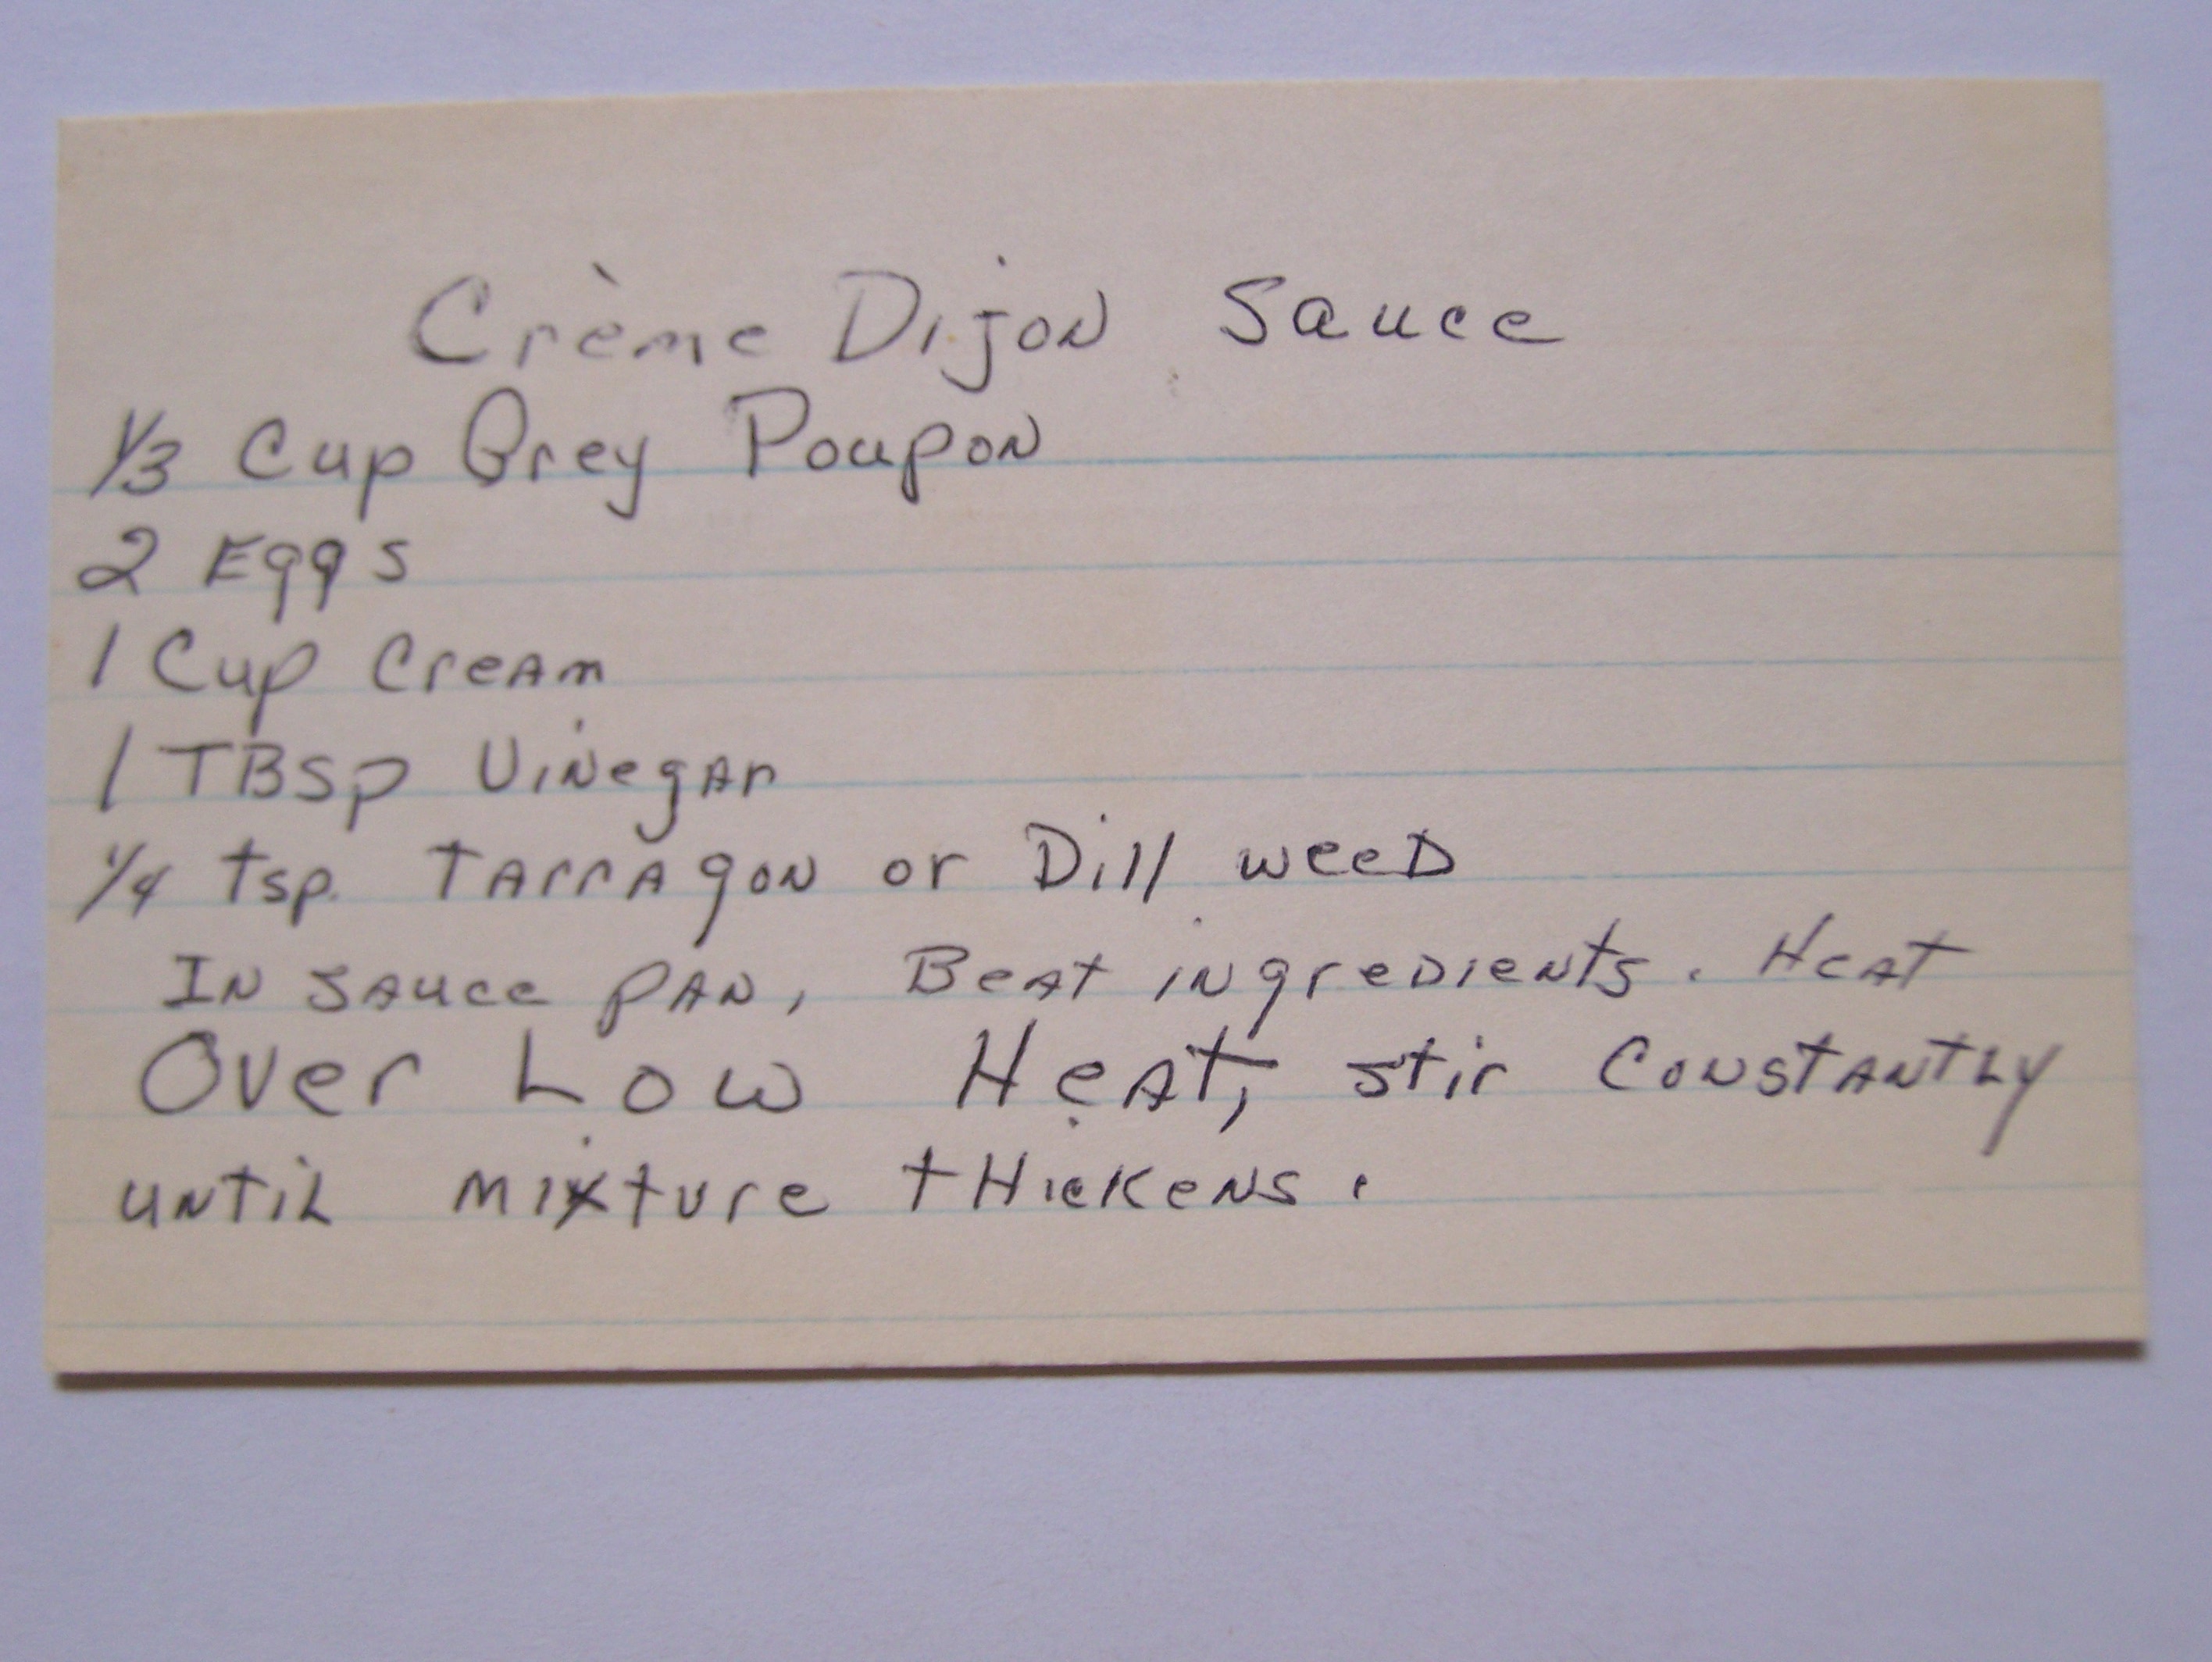 Crème Dijon Sauce
1/3 Cup Grey Poupon
2 Eggs
1 Cup Cream
1 TBSp Vinegar
1/4 tsp. tArrAgon or Dill weeD
In sauce pan, Beat ingreDients. Heat
Over Low Heat, stir ConstantLy
untiL mixture tHickens.